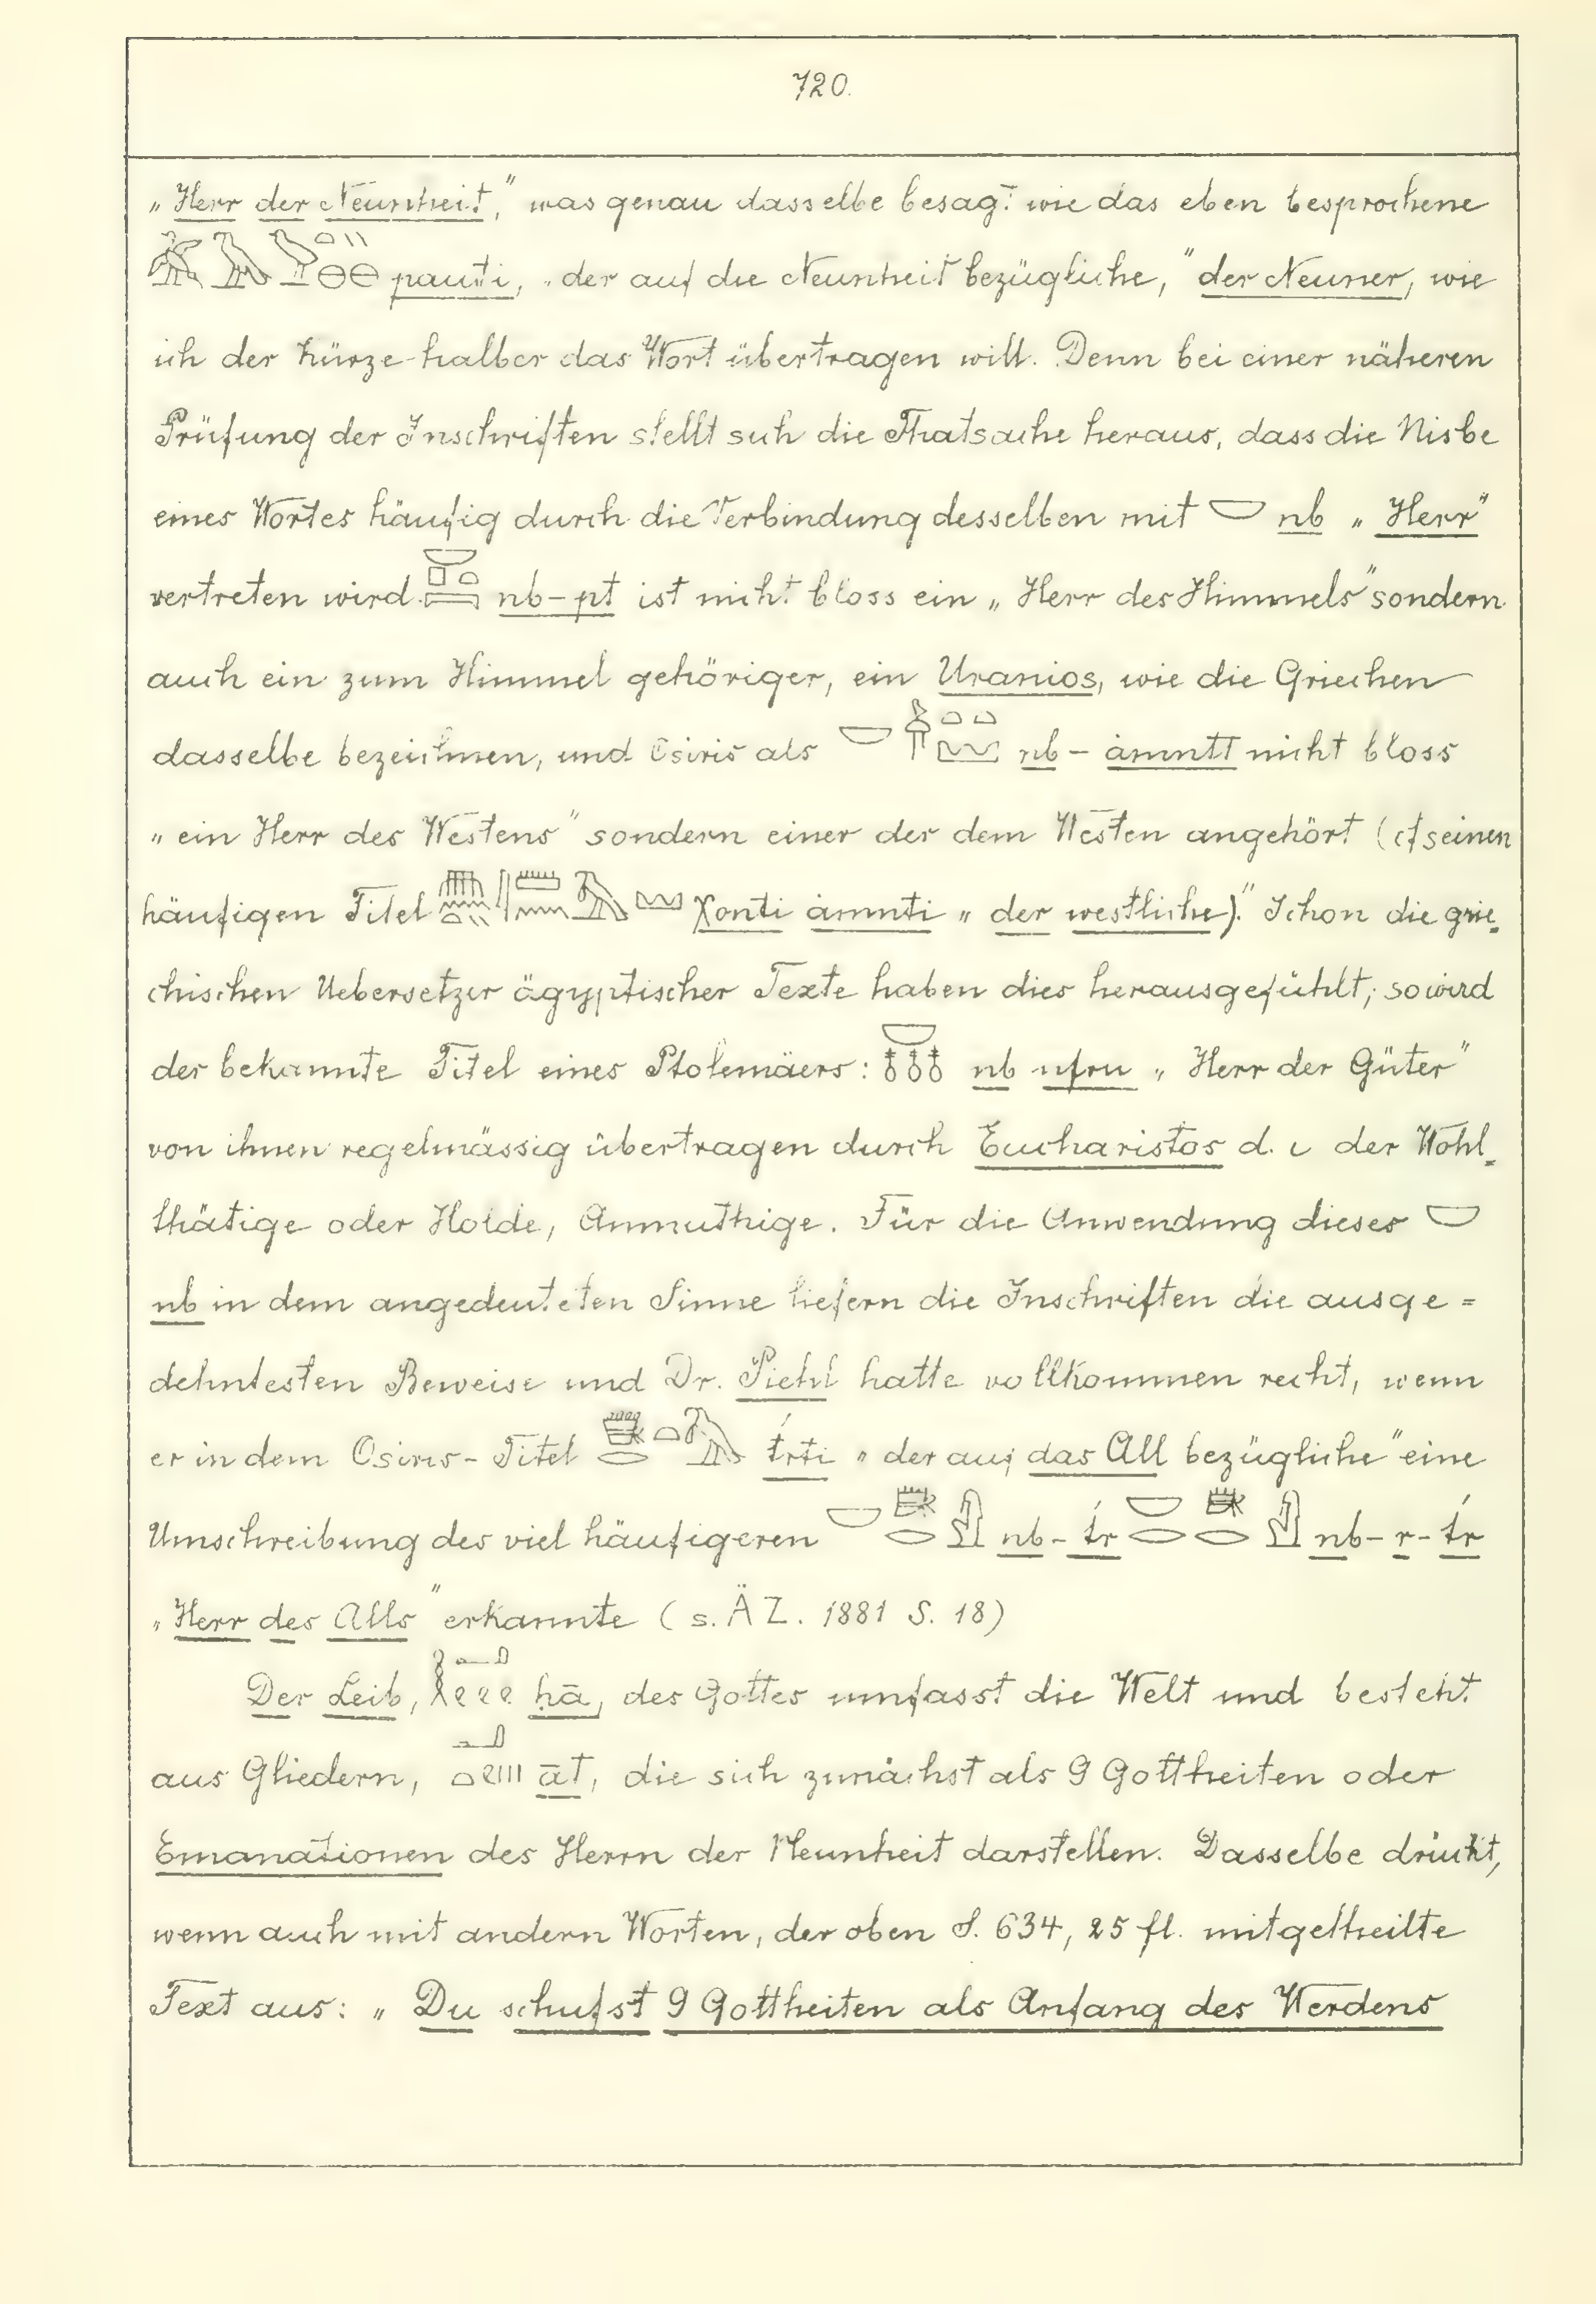 720.
„Herr der Neunheit,“ was genau dasselbe besagt wie das eben besprochene
pauti, „der auf die Neunheit bezügliche,“ der Neuner, wie
ich der Kürze halber das Wort übertragen will. Denn bei einer näheren
Prüfung der Inschriften stellt sich die Thatsache heraus, dass die Nisbe
eines Wortes häufig durch die Verbindung desselben mit 𓎟 nb „Herr“
vertreten wird. nb-pt ist nicht bloss ein „Herr des Himmels“ sondern
auch ein zum Himmel gehöriger, ein Uranios, wie die Griechen
dasselbe bezeichnen, und Osiris als nb-ȧmntt nicht bloss
„ein Herr des Westens“ sondern einer der dem Westen angehört (cf seinen
häufigen Titel χonti ȧmnti „der westliche).“ Schon die grie-
chischen Uebersetzer ägyptischer Texte haben dies herausgefühlt; so wird
der bekannte Titel eines Ptolemäers: 𓎟𓄤𓄤𓄤 nb nfru „Herr der Güter“
von ihnen regelmässig übertragen durch Eucharistos d. i der Wohl-
thätige oder Holde, Anmuthige. Für die Anwendung dieses 𓎟
nb in dem angedeuteten Sinne liefern die Inschriften die ausge=
dehntesten Beweise und Dr. Piehl hatte vollkommen recht, wenn
er in dem Osiris-Titel t́rti „der auf das All bezügliche“ eine
Umschreibung des viel häufigeren nb-t́r nb-r-t́r
„Herr des Alls“ erkannte (s. ÄZ. 1881 S. 18)
Der Leib, ḥā, des Gottes umfasst die Welt und besteht
aus Gliedern, āt, die sich zunächst als 9 Gottheiten oder
Emanationen des Herrn der Neunheit darstellen. Dasselbe drückt,
wenn auch mit andern Worten, der oben S. 634, 25 fl. mitgetheilte
Text aus: „Du schufst 9 Gottheiten als Anfang des Werdens